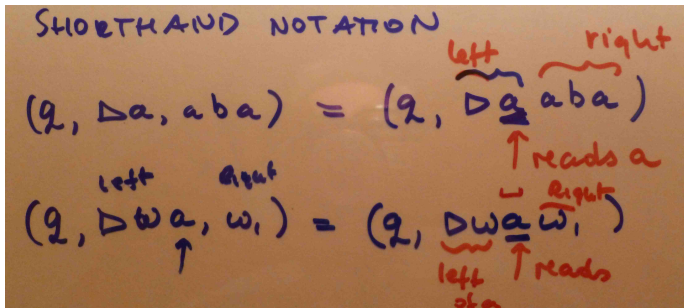 SHORTHAND NOTATION
left right
(q, ▷a, aba) = (q, ▷a aba)
↑ reads a
left Right Right
(q, ▷wa, w₁) = (q, ▷wa w₁)
↑ left ↑ reads
of a